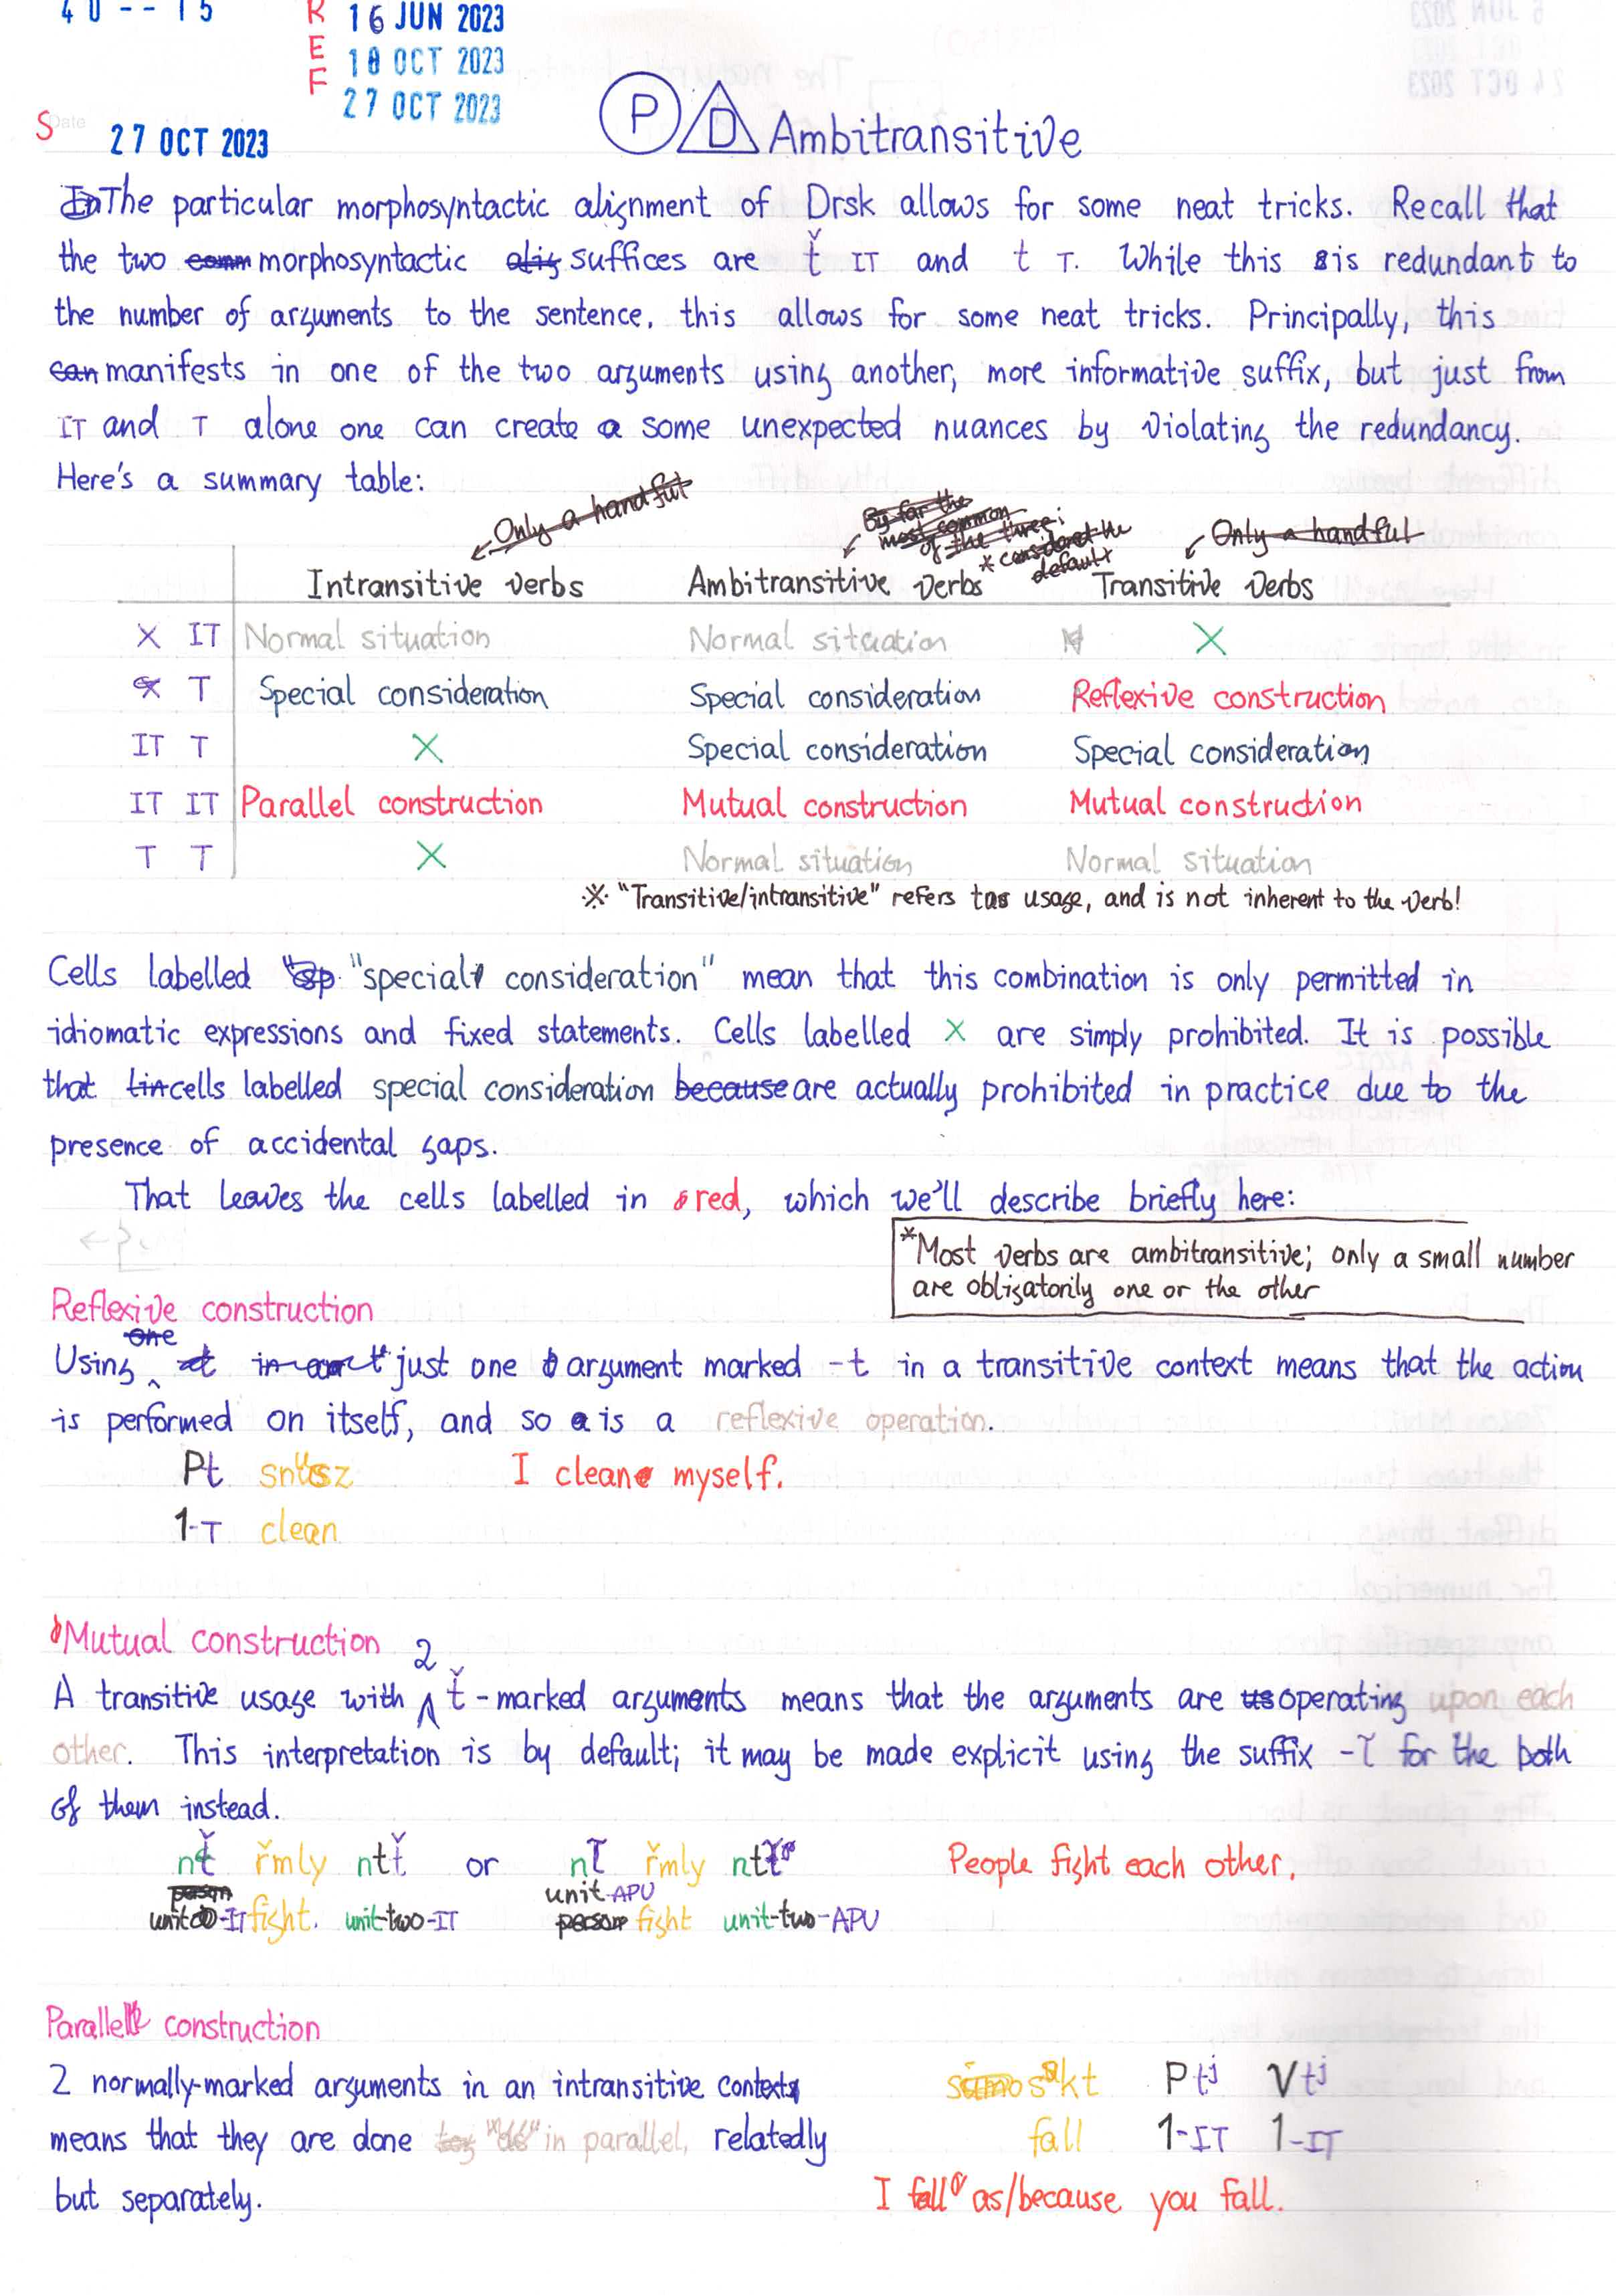 40 -- 15
REF
16 JUN 2023
18 OCT 2023
27 OCT 2023
S Date 27 OCT 2023
P D Ambitransitive
The particular morphosyntactic alignment of Drsk allows for some neat tricks. Recall that
the two morphosyntactic suffices are ť IT and t T. While this is redundant to
the number of arguments to the sentence, this allows for some neat tricks. Principally, this
manifests in one of the two arguments using another, more informative suffix, but just from
IT and T alone one can create some unexpected nuances by violating the redundancy.
Here's a summary table:
Only a handful
By far the most common of the three; *considered the default
Only a handful
Intransitive verbs Ambitransitive verbs Transitive verbs
X IT Normal situation Normal situation X
X T Special consideration Special consideration Reflexive construction
IT T X Special consideration Special consideration
IT IT Parallel construction Mutual construction Mutual construction
T T X Normal situation Normal situation
※ "Transitive/intransitive" refers to usage, and is not inherent to the verb!
Cells labelled "special consideration" mean that this combination is only permitted in
idiomatic expressions and fixed statements. Cells labelled X are simply prohibited. It is possible
that cells labelled special consideration are actually prohibited in practice due to the
presence of accidental gaps.
That leaves the cells labelled in red, which we'll describe briefly here:
*Most verbs are ambitransitive; only a small number
are obligatorily one or the other
Reflexive construction
Using just one argument marked -t in a transitive context means that the action
is performed on itself, and so is a reflexive operation.
Pt I clean myself.
1-T clean
Mutual construction
A transitive usage with 2 ť-marked arguments means that the arguments are operating upon each
other. This interpretation is by default; it may be made explicit using the suffix -ɩ for the both
of them instead.
nť řmly ntť or nɩ řmly ntɩ People fight each other.
unit-IT fight. unit-two-IT unit-APU fight unit-two-APU
Parallel construction
2 normally-marked arguments in an intransitive context
means that they are done in parallel, relatedly
but separately.
Ptj Vtj
fall 1-IT 1-IT
I fall as/because you fall.